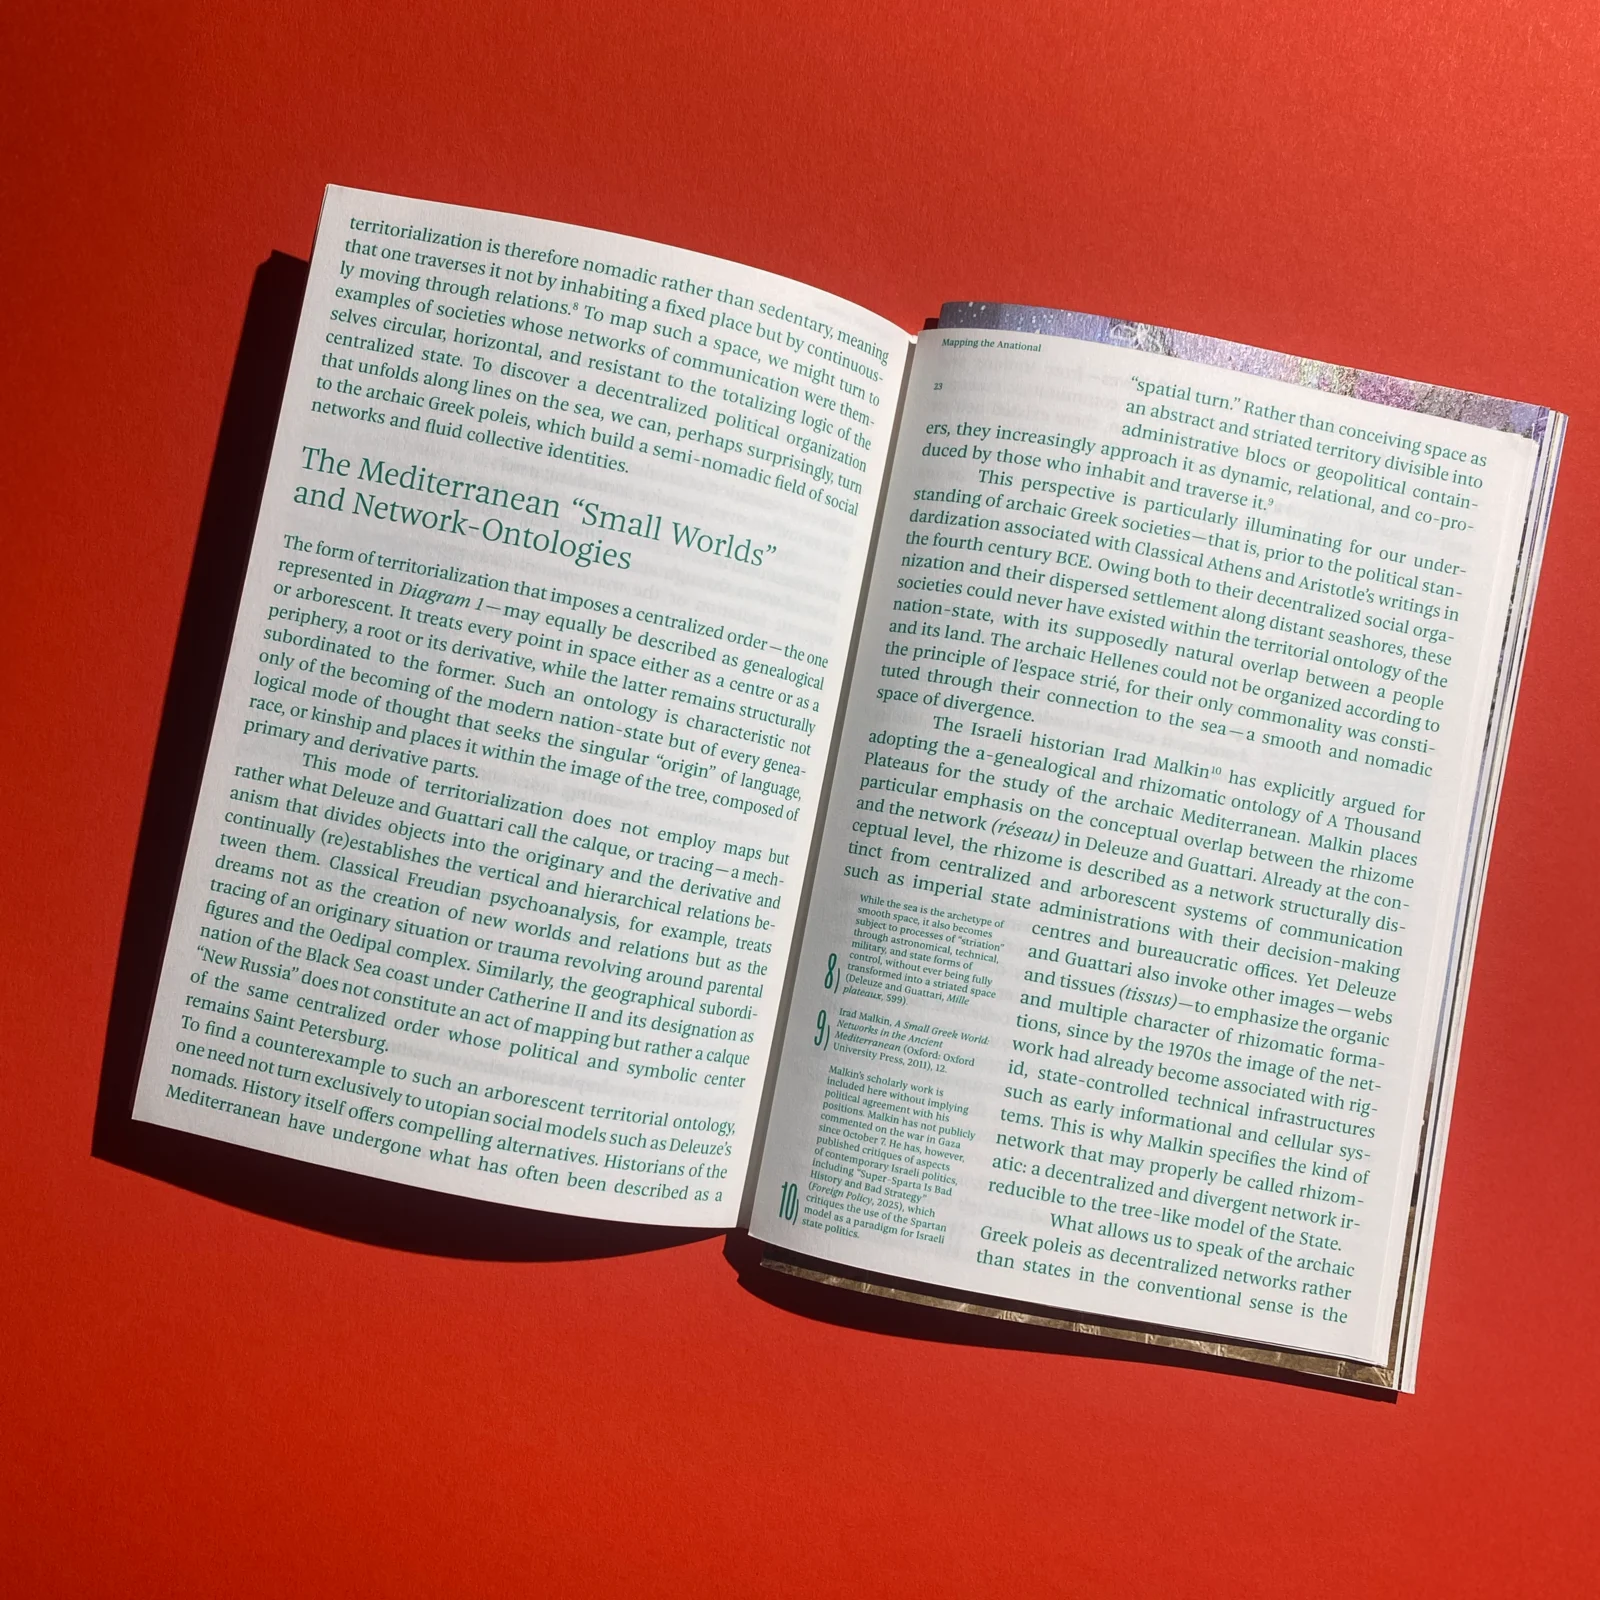 territorialization is therefore nomadic rather than sedentary, meaning
that one traverses it not by inhabiting a fixed place but by continuous-
ly moving through relations.⁸ To map such a space, we might turn to
examples of societies whose networks of communication were them-
selves circular, horizontal, and resistant to the totalizing logic of the
centralized state. To discover a decentralized political organization
that unfolds along lines on the sea, we can, perhaps surprisingly, turn
to the archaic Greek poleis, which build a semi-nomadic field of social
networks and fluid collective identities.
The Mediterranean “Small Worlds”
and Network-Ontologies
The form of territorialization that imposes a centralized order—the one
represented in Diagram 1—may equally be described as genealogical
or arborescent. It treats every point in space either as a centre or as a
periphery, a root or its derivative, while the latter remains structurally
subordinated to the former. Such an ontology is characteristic not
only of the becoming of the modern nation-state but of every genea-
logical mode of thought that seeks the singular “origin” of language,
race, or kinship and places it within the image of the tree, composed of
primary and derivative parts.
This mode of territorialization does not employ maps but
rather what Deleuze and Guattari call the calque, or tracing—a mech-
anism that divides objects into the originary and the derivative and
continually (re)establishes the vertical and hierarchical relations be-
tween them. Classical Freudian psychoanalysis, for example, treats
dreams not as the creation of new worlds and relations but as the
tracing of an originary situation or trauma revolving around parental
figures and the Oedipal complex. Similarly, the geographical subordi-
nation of the Black Sea coast under Catherine II and its designation as
“New Russia” does not constitute an act of mapping but rather a calque
of the same centralized order whose political and symbolic center
remains Saint Petersburg.
To find a counterexample to such an arborescent territorial ontology,
one need not turn exclusively to utopian social models such as Deleuze’s
nomads. History itself offers compelling alternatives. Historians of the
Mediterranean have undergone what has often been described as a
Mapping the Anational
23
“spatial turn.” Rather than conceiving space as
an abstract and striated territory divisible into
administrative blocs or geopolitical contain-
ers, they increasingly approach it as dynamic, relational, and co-pro-
duced by those who inhabit and traverse it.⁹
This perspective is particularly illuminating for our under-
standing of archaic Greek societies—that is, prior to the political stan-
dardization associated with Classical Athens and Aristotle’s writings in
the fourth century BCE. Owing both to their decentralized social orga-
nization and their dispersed settlement along distant seashores, these
societies could never have existed within the territorial ontology of the
nation-state, with its supposedly natural overlap between a people
and its land. The archaic Hellenes could not be organized according to
the principle of l’espace strié, for their only commonality was consti-
tuted through their connection to the sea—a smooth and nomadic
space of divergence.
The Israeli historian Irad Malkin¹⁰ has explicitly argued for
adopting the a-genealogical and rhizomatic ontology of A Thousand
Plateaus for the study of the archaic Mediterranean. Malkin places
particular emphasis on the conceptual overlap between the rhizome
and the network (réseau) in Deleuze and Guattari. Already at the con-
ceptual level, the rhizome is described as a network structurally dis-
tinct from centralized and arborescent systems of communication
such as imperial state administrations with their decision-making
centres and bureaucratic offices. Yet Deleuze
and Guattari also invoke other images—webs
and tissues (tissus)—to emphasize the organic
and multiple character of rhizomatic forma-
tions, since by the 1970s the image of the net-
work had already become associated with rig-
id, state-controlled technical infrastructures
such as early informational and cellular sys-
tems. This is why Malkin specifies the kind of
network that may properly be called rhizom-
atic: a decentralized and divergent network ir-
reducible to the tree-like model of the State.
What allows us to speak of the archaic
Greek poleis as decentralized networks rather
than states in the conventional sense is the
8)
While the sea is the archetype of
smooth space, it also becomes
subject to processes of “striation”
through astronomical, technical,
military, and state forms of
control, without ever being fully
transformed into a striated space
(Deleuze and Guattari, Mille
plateaux, 599).
9)
Irad Malkin, A Small Greek World:
Networks in the Ancient
Mediterranean (Oxford: Oxford
University Press, 2011), 12.
10)
Malkin’s scholarly work is
included here without implying
political agreement with his
positions. Malkin has not publicly
commented on the war in Gaza
since October 7. He has, however,
published critiques of aspects
of contemporary Israeli politics,
including “Super-Sparta Is Bad
History and Bad Strategy”
(Foreign Policy, 2025), which
critiques the use of the Spartan
model as a paradigm for Israeli
state politics.